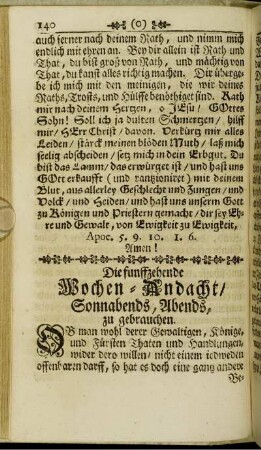 140 (0)
auch ferner nach deinem Rath, und nimm mich
endlich mit ehren an. Bey dir allein ist Rath und
That, du bist groß von Rath, und mächtig von
That, du kanst alles richtig machen. Dir überge-
be ich mich mit den meinigen, die wir deines
Raths, Trosts, und Hülffe benöthiget sind. Rath
mir nach deinem Hertzen, o JEsu / GOttes
Sohn! Soll ich ja dulten Schmertzen / hilff
mir / HErr Christ / davon. Verkürtz mir alles
Leiden / stärck meinen blöden Muth / laß mich
seelig abscheiden / setz mich in dein Erbgut. Du
bist das Lamm / das erwürget ist / und hast uns
GOtt erkaufft (und rantzioniret) mit deinem
Blut, aus allerley Geschlecht und Zungen / und
Volck / und Heiden / und hast uns unserm Gott
zu Königen und Priestern gemacht / dir sey Eh-
re und Gewalt, von Ewigkeit zu Ewigkeit,
Apoc. 5. 9. 10. 1. 6.
Amen!
Die funffzehende
Wochen-Andacht /
Sonnabends, Abends,
zu gebrauchen.
OB man wohl derer Gewaltigen, Könige,
und Fürsten Thaten und Handlungen,
wider dero willen / nicht einem iedweden
offenbaren darff, so hat es doch eine gang andere
Be-